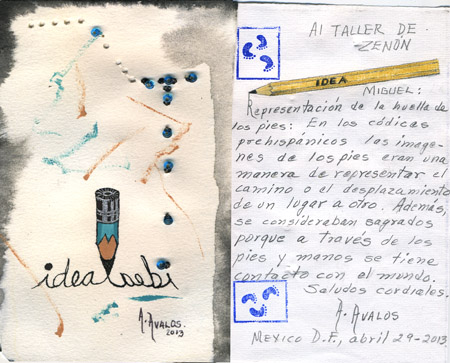 idea sebi
A. AVALOS.
2013
Al TALLER DE
ZENÓN
IDEA
MIGUEL:
Representación de la huella de
los pies: En los códices
prehispánicos las image-
nes de los pies eran una
manera de representar el
camino o el desplazamiento
de un lugar a otro. Además,
se consideraban sagrados
porque a través de los
pies y manos se tiene
contacto con el mundo.
Saludos cordiales.
A. AVALOS
MEXICO D.F., abril 29-2013